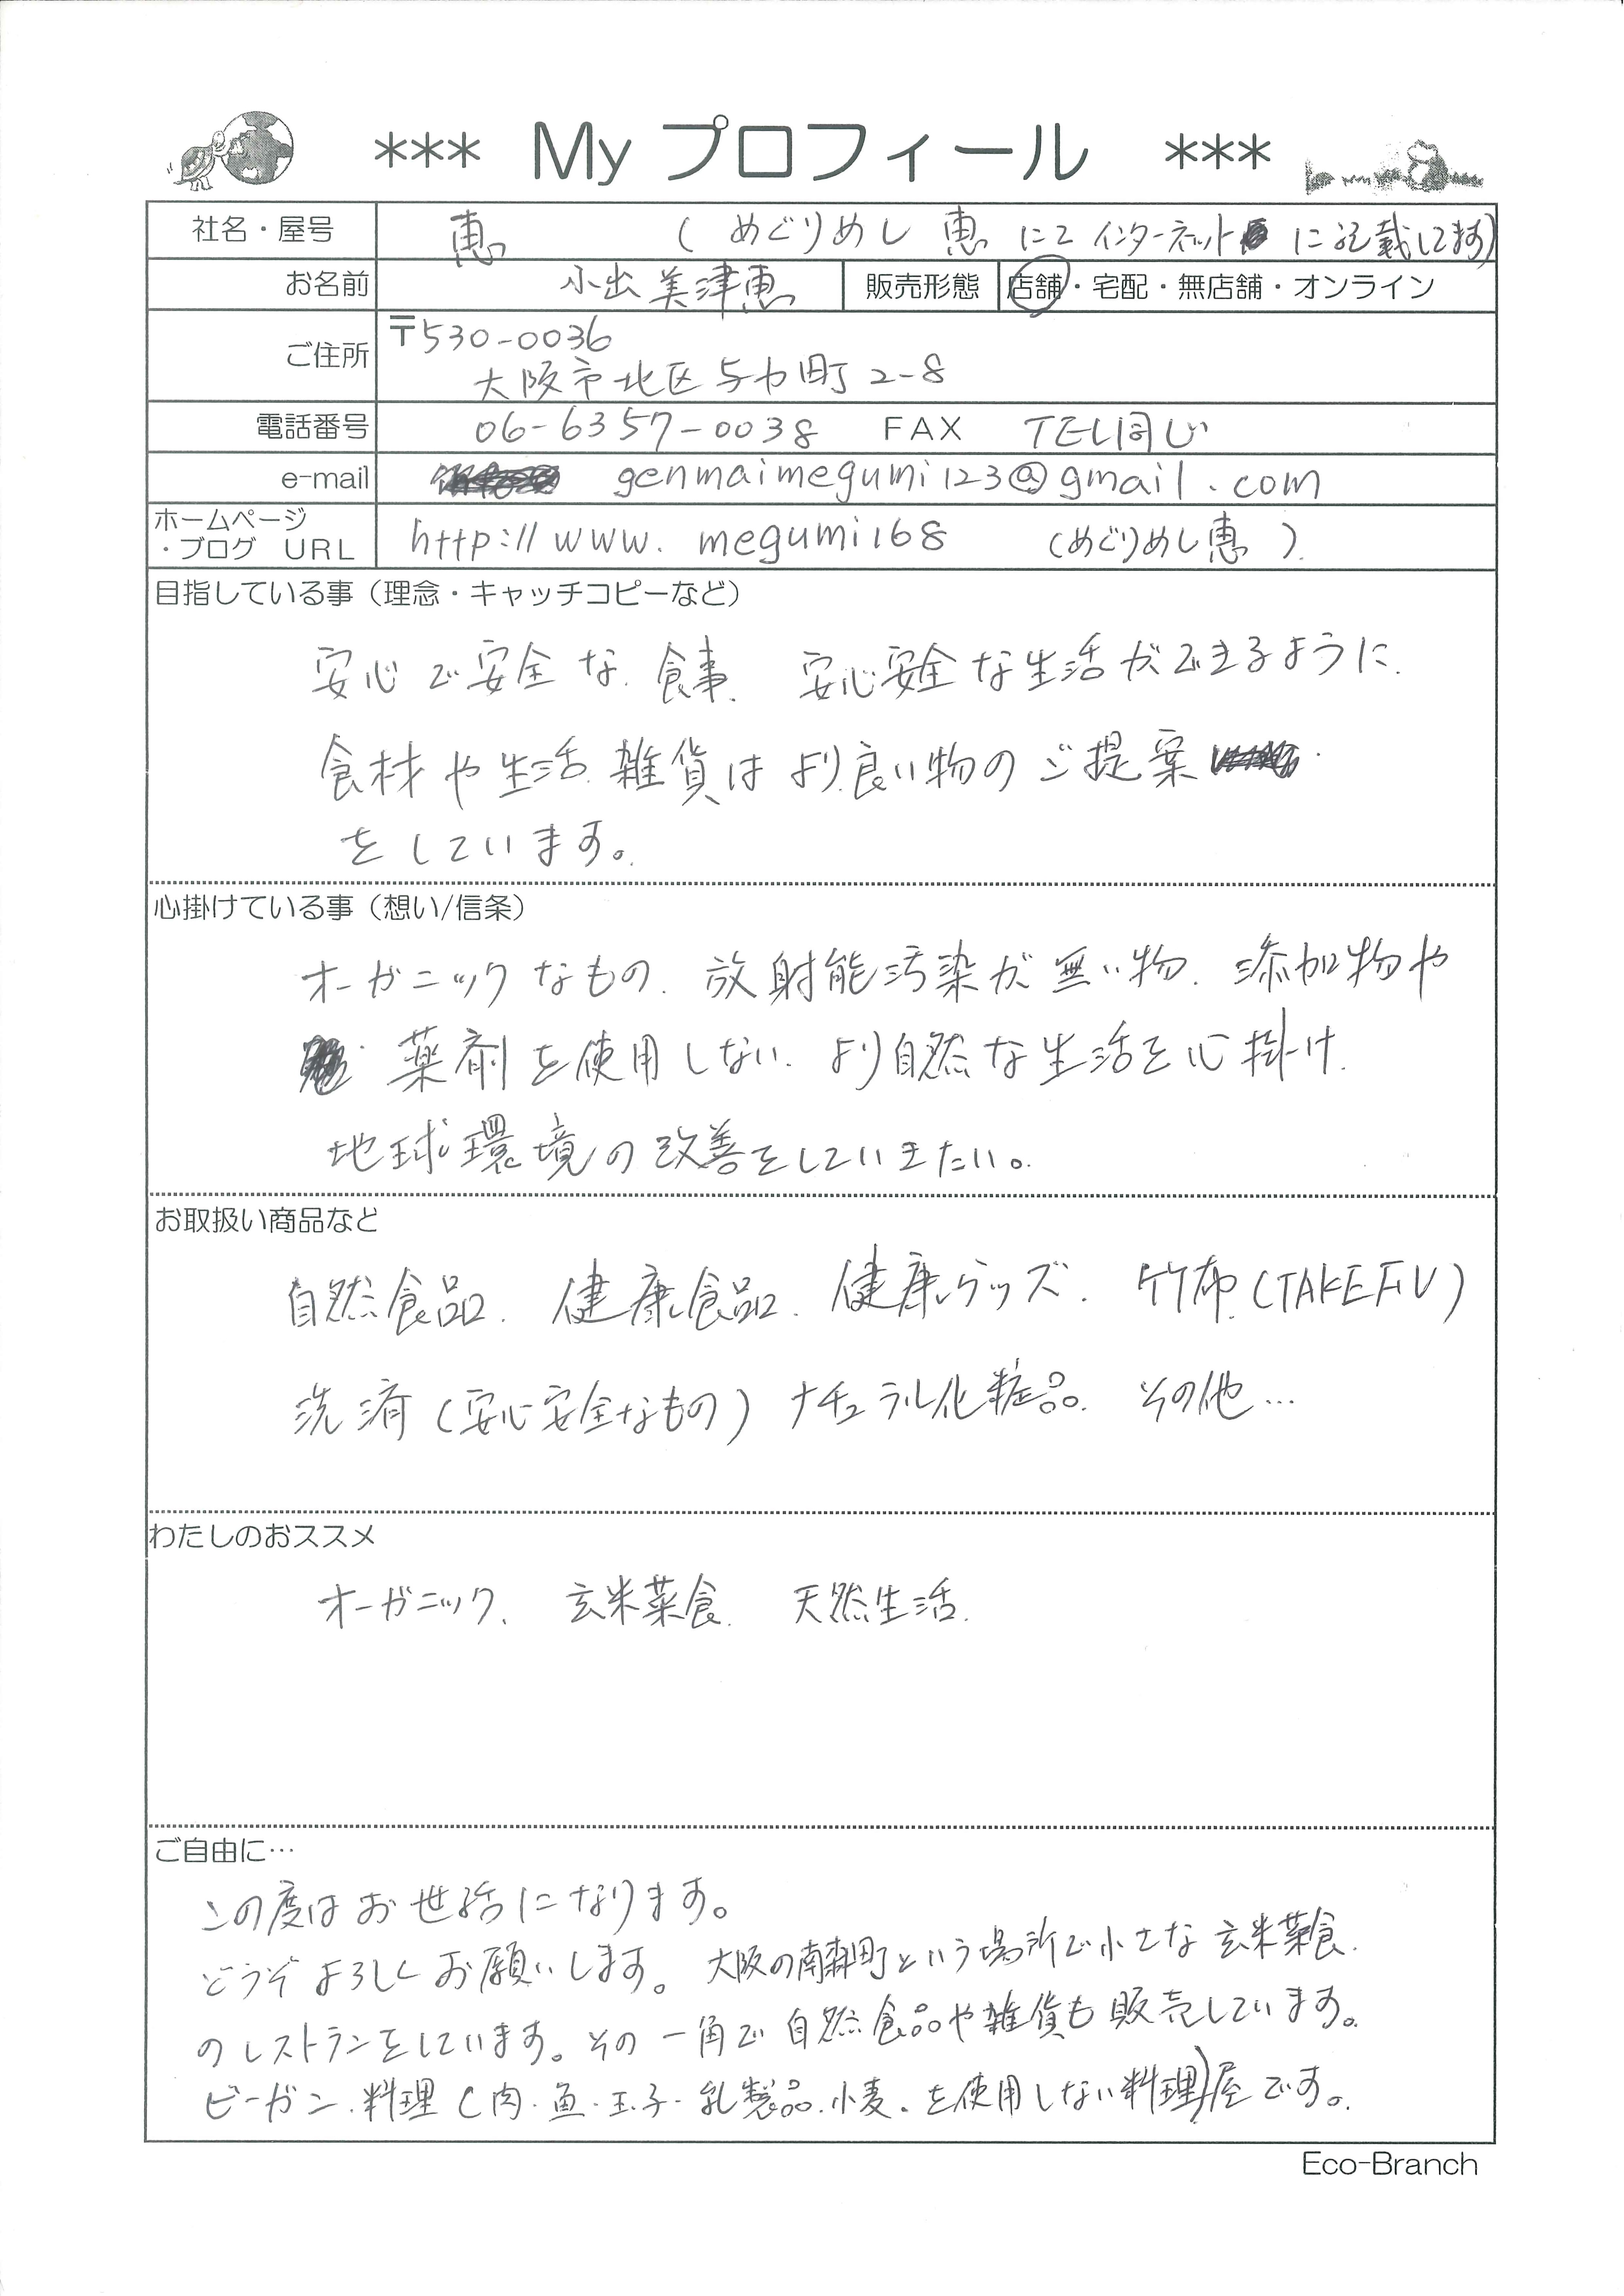 *** My プロフィール ***
社名・屋号 恵 （めぐりめし 恵 にて インターネット に記載してます）
お名前 小出 美津恵 販売形態 店舗・宅配・無店舗・オンライン
ご住所 〒530-0036
大阪市北区与力町 2-8
電話番号 06-6357-0038 FAX TEL同じ
e-mail genmaimegumi123@gmail.com
ホームページ
・ブログ URL http://www. megumi168 （めぐりめし恵）
目指している事（理念・キャッチコピーなど）
安心で安全な食事、安心安全な生活ができるように、
食材や生活雑貨は より良い物のご提案
をしています。
心掛けている事（想い/信条）
オーガニックなもの、放射能汚染が無い物、添加物や
薬剤を使用しない、より自然な生活を心掛け、
地球環境の改善をしていきたい。
お取扱い商品など
自然食品、健康食品、健康グッズ、竹布（TAKEFU）
洗済（安心安全なもの）ナチュラル化粧品、その他…
わたしのおススメ
オーガニック、玄米菜食、天然生活、
ご自由に…
この度はお世話になります。
どうぞよろしくお願いします。大阪の南森町という場所で小さな玄米菜食
のレストランをしています。その一角で自然食品や雑貨も販売しています。
ビーガン料理（肉・魚・玉子・乳製品・小麦、を使用しない料理）屋です。
Eco-Branch